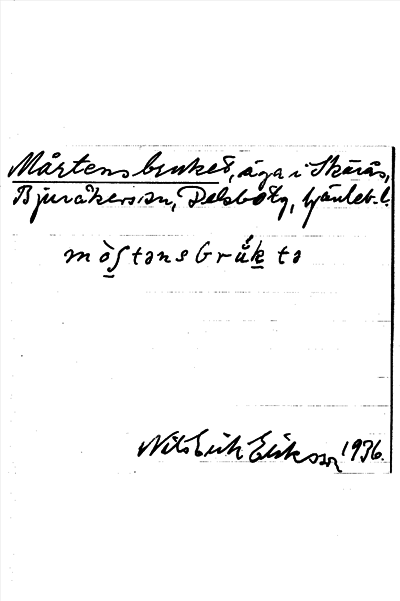 Mårtensbruket, äga i Skärås,
Bjuråkers sn, Delsbo tg, Gävleb. l.
mo̱ʃtənsbrʉ́ḵtə
Nils Erik Eriksson 1936.